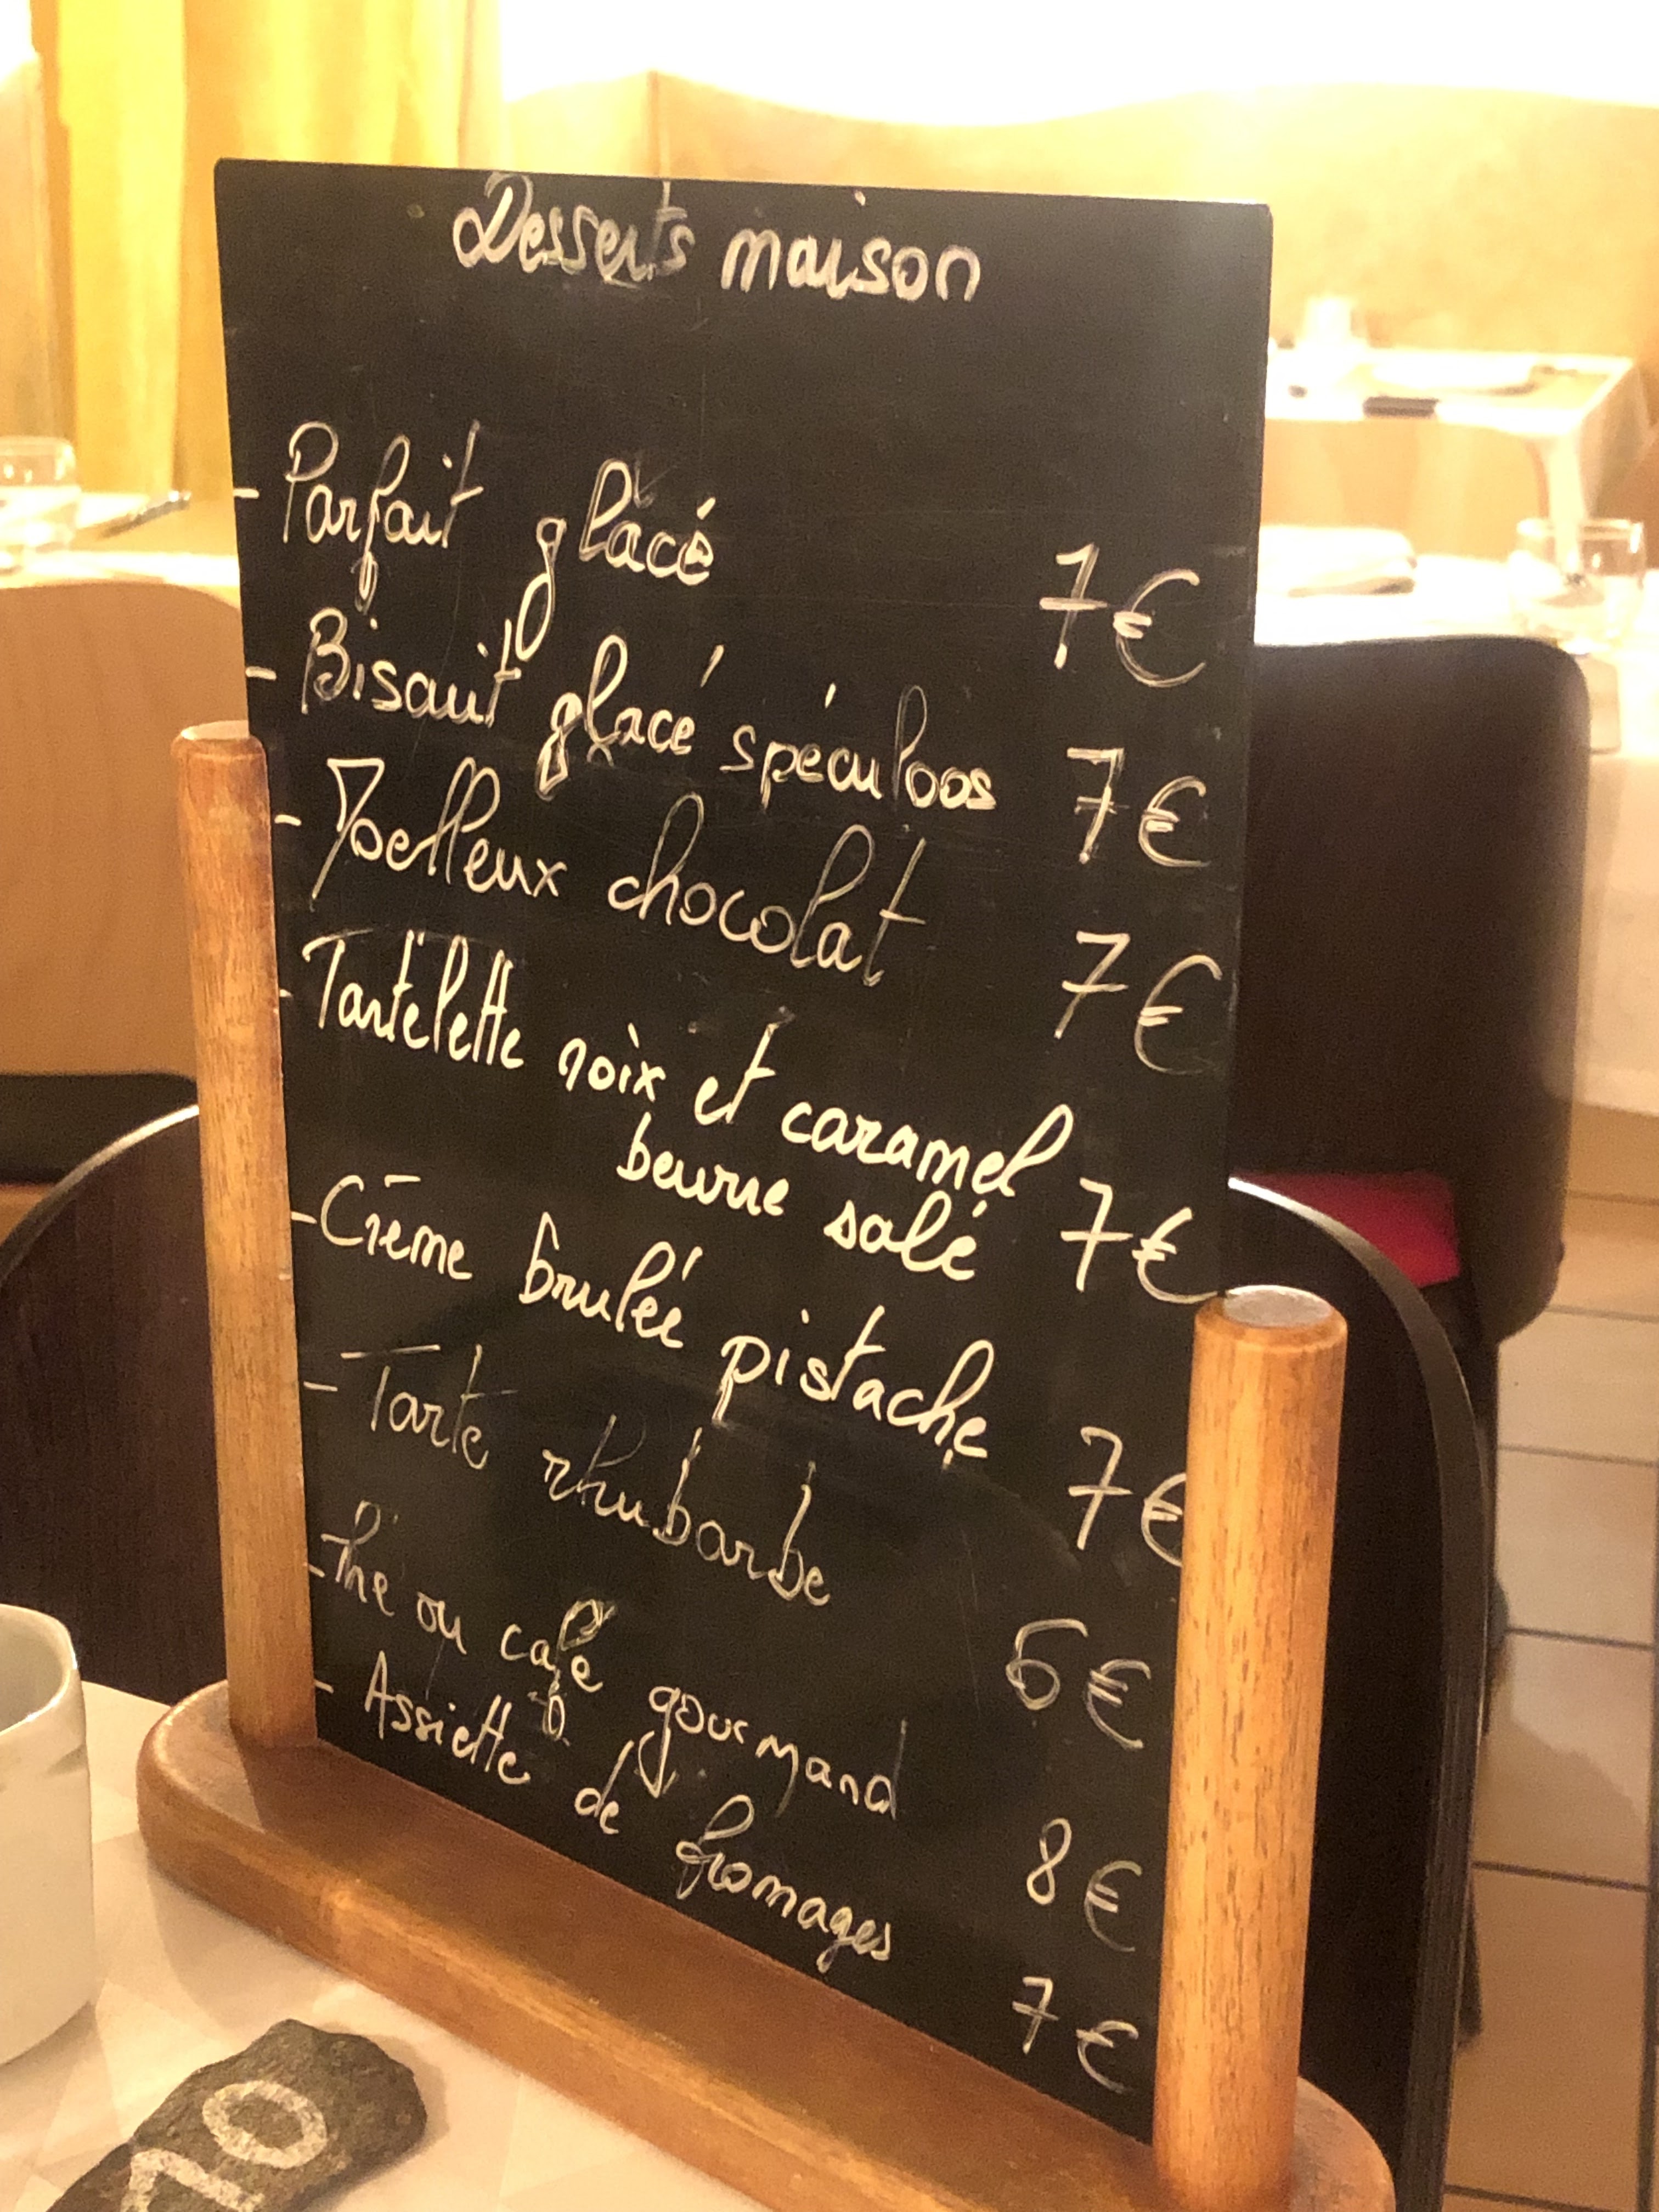 Desserts maison
- Parfait glacé 7€
- Biscuit glacé spéculoos 7€
- Moelleux chocolat 7€
- Tartelette noix et caramel
beurre salé 7€
- Crème brulée pistache 7€
- Tarte rhubarbe 6€
- Thé ou café gourmand 8€
- Assiette de fromages 7€
10